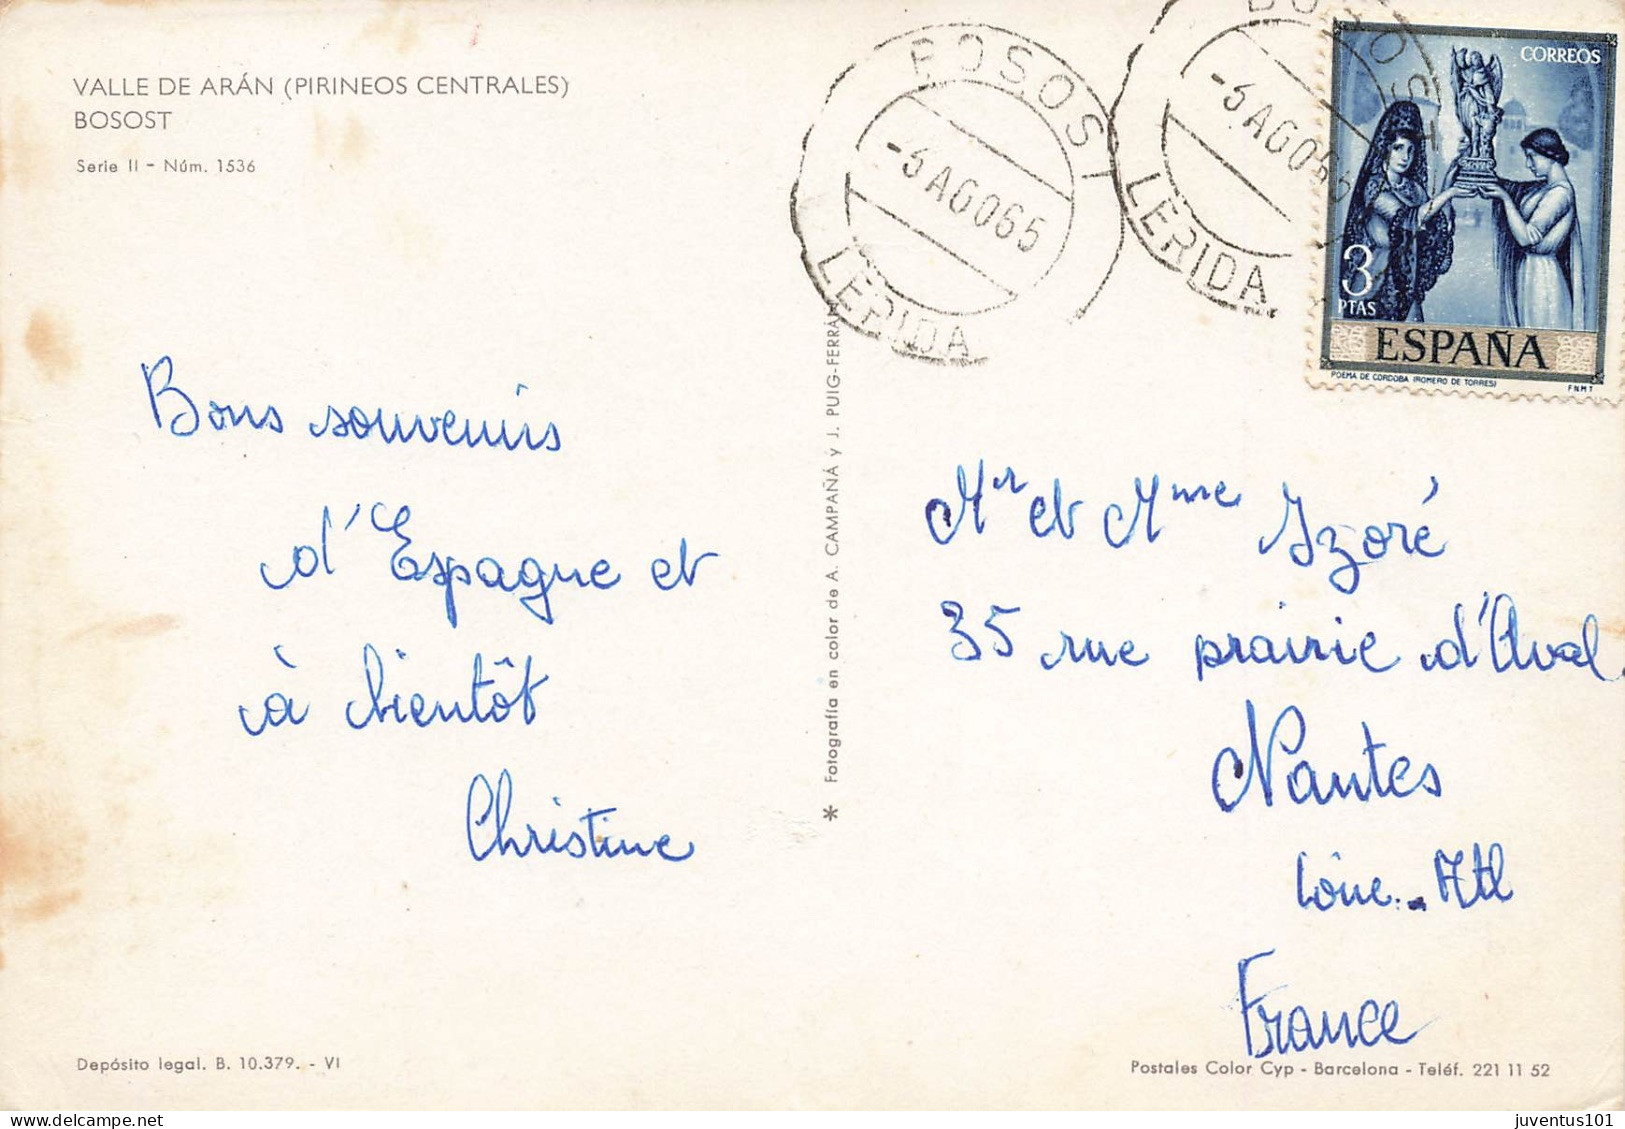 VALLE DE ARÁN (PIRINEOS CENTRALES)
BOSOST
Serie II - Núm. 1536
BOSOST
-6 AGO 65
LERIDA
BOSOST
-6 AGO 65
LERIDA
CORREOS
3
PTAS
ESPAÑA
POEMA DE CORDOBA (ROMERO DE TORRES)
F N M T
Bons souvenirs
d'Espagne et
à bientôt
Christine
* Fotografía en color de A. CAMPAÑÁ y J. PUIG-FERRÁN
Mr et Mme Izoré
35 rue prairie d'Aval
Nantes
Loire-Atl
France
Depósito legal. B. 10.379. - VI
Postales Color Cyp - Barcelona - Teléf. 221 11 52
juventus101